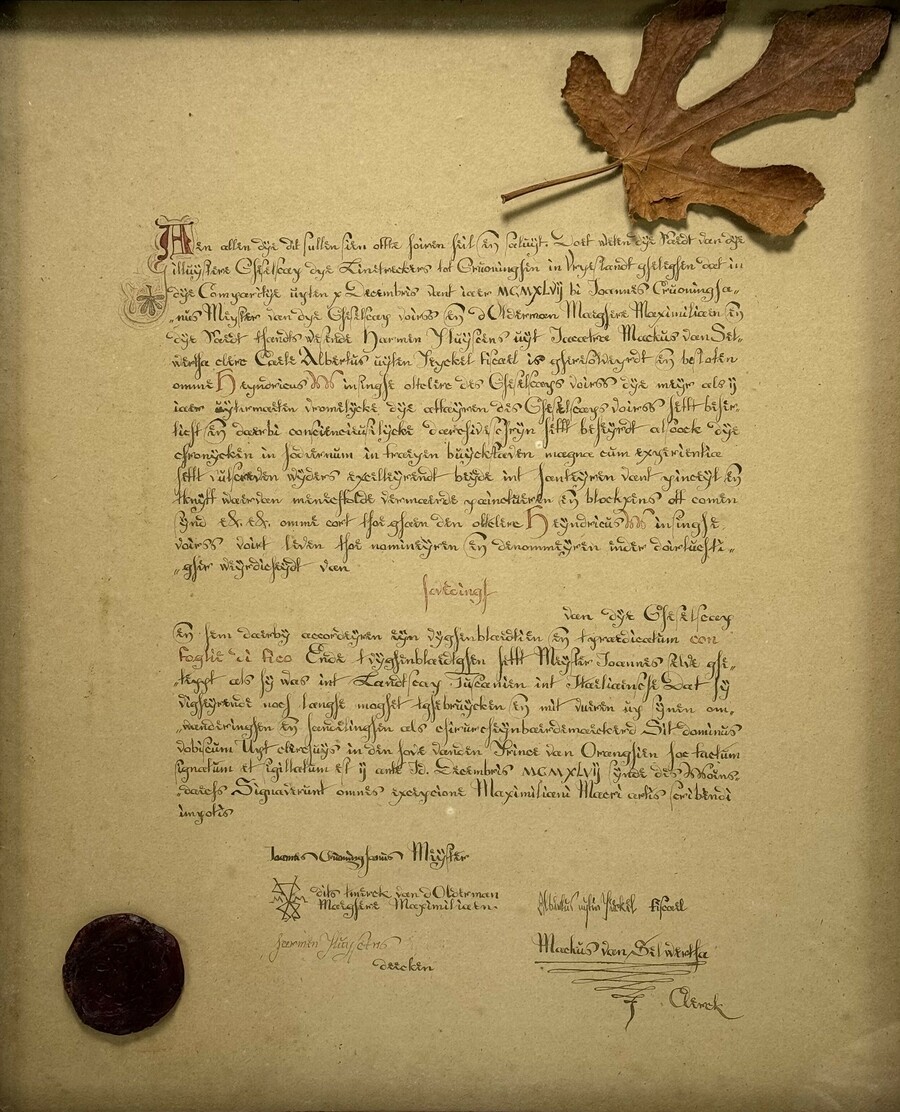 Aen allen dye dit sullen sien ofte horen heil en saluijt. Doet weten dye Raedt van dye
illuystere Gheselscap dye Linetreckers tot Gruoninghen in Vryeslandt gheleghen dat in
dye Comparitye uyten x Decembris vant iaer MCMXLVIJ bi Joannes Gruoningha„
„nus Meyster van dye Gheselscap voirss en d Olderman Maeghere Maximiliaen en
dye Raedt thands wesende Harmen Huysens uyt Jaccetra Mackus van Sel„
wertha clerc Caeke Albertus uyten Heyckel fiscael is gheresolveyrdt en besloten
omme Heyndricus W insinghe oltclerc des Gheselscaps voirss dye meyr als ij
iaer uytermaeten vromelycke dye affayren des Gheselscaps voirss heft beher„
ticht en daerbi conscienciuslycke d'archivescrijn heft beheyrdt alsoock dye
chronycken in hodvernum in fraeyen buyckstaven magna cum experientia
heft vulscreven wyders excelleyrendt beyde int hanteyren vant pinceyl en
knyff waervan menichfolde vermaerde painctueren en blockpens off comen
synd etc. etc. omme cort thoe ghaen den oltclerc Heyndricus W insinghe
voirss voirt leven thoe nomineyren en denommeyren inder doirluchti„
„gher weyrdicheydt van
hovelingh
van dye Gheselscap
en hem daerby accordeyren eyn vyghenbladtien en t praedicatum con
foglie di fico Ende t vyghenbladtghen heft Meyster Joannes selve ghe„
kept als hy was int Landtscap Tuscanien int Italiaensche Dat hy
vigheyrende noch langhe moghet t ghebruycken en mit vueren in synen om„
„wanderinghen en handelinghen als chirurcheynbaerdemaeckerd Sit dominus
vobiscum Uyt clerchuys in den hove vanden Prince van Oranghien hoc factum
signatum et sigillatum et ij ante Id. Decembris MCMXLVIJ synde des Woens„
daechs Signaverunt omnes excepcione Maximiliani Macri artis scribendi
impotis
Joannes Gruoninghanus Meyster
dits tmerck van d Olderman
Maeghere Maximiliaen
Albertus uyten Heyckel fiscael
Harmen Huysens
deecken
Mackus van Selwertha
Clerck